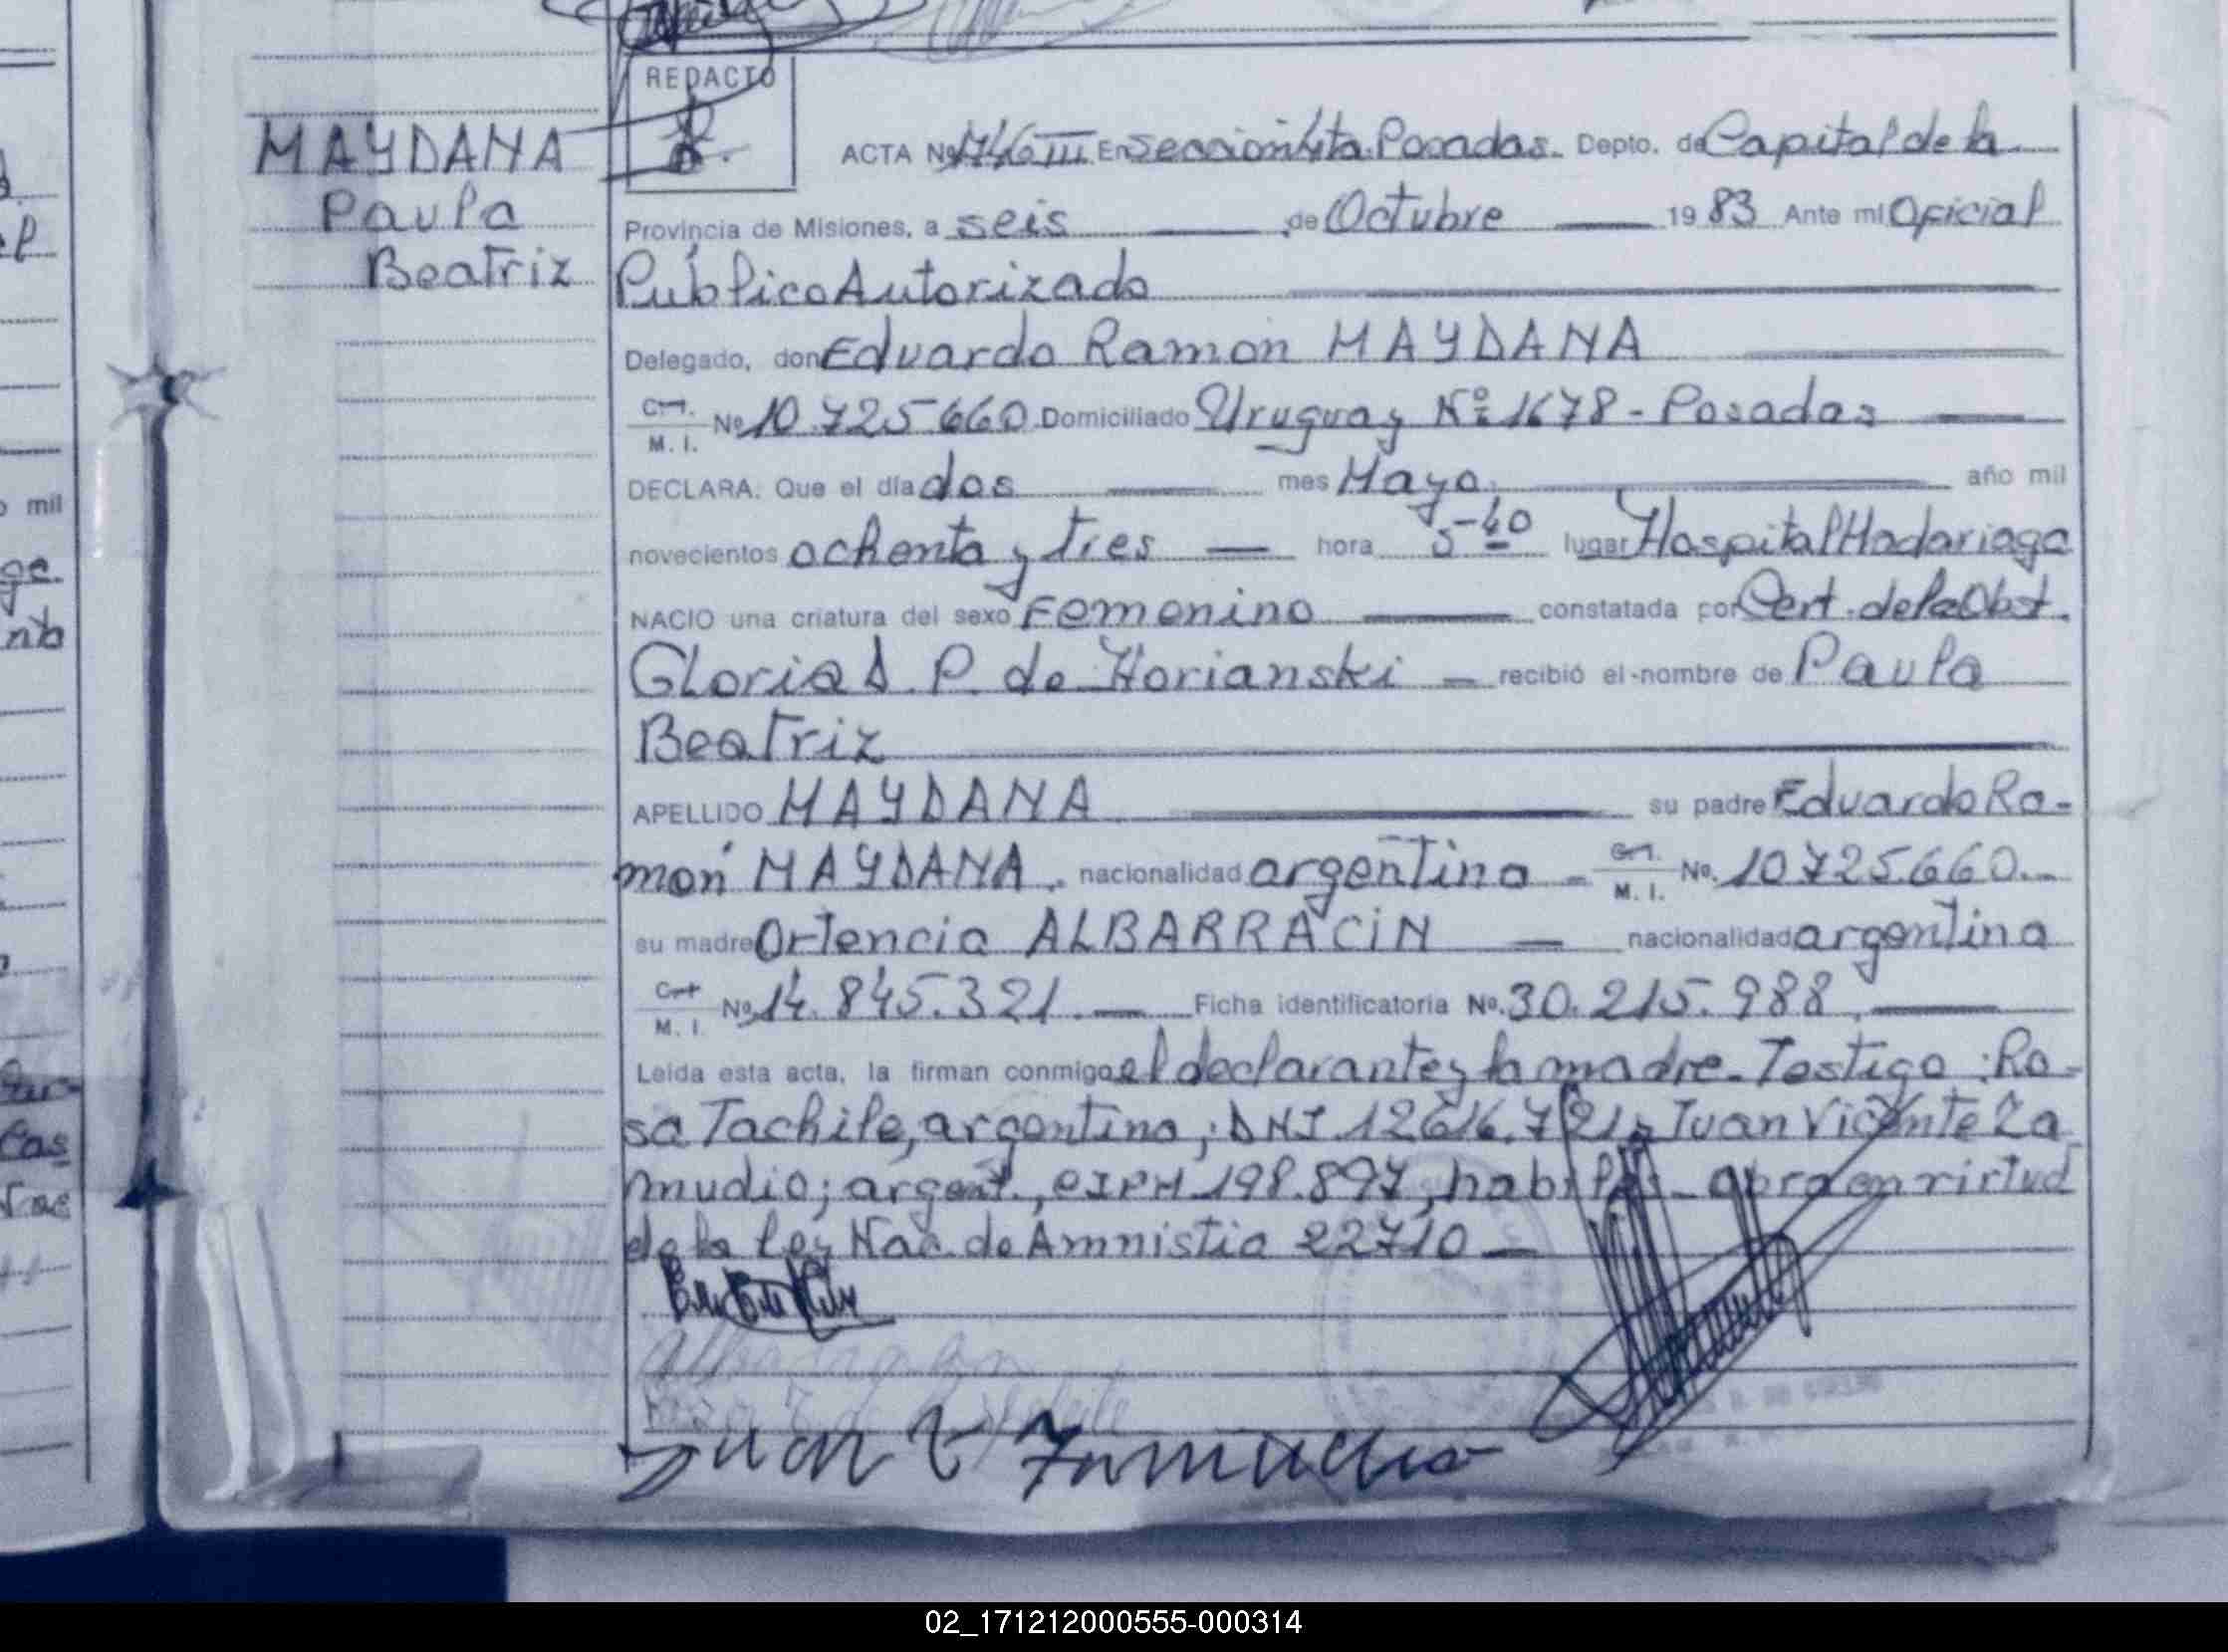 REDACTO
MAYDANA
Paula
Beatriz
ACTA Nº 1746 III En Sección 4ta. Posadas. Depto. de Capital de la
Provincia de Misiones, a seis de Octubre 1983 Ante mi Oficial
Público Autorizado
Delegado, don Eduardo Ramon MAYDANA
M. I. Nº 10.725.660 Domiciliado Uruguay Nº 1678 - Posadas
DECLARA: Que el día dos mes Mayo. año mil
novecientos ochenta y tres hora 5-40 lugar Hospital Madariaga
NACIO una criatura del sexo Femenino constatada por Cert. de la Obst.
Gloria D. P. de Horianski recibió el nombre de Paula
Beatriz
APELLIDO MAYDANA su padre Eduardo Ra-
món MAYDANA. nacionalidad argentino M. I. No. 10.725.660.-
su madre Ortencia ALBARRACÍN nacionalidad argentina
M. I. Nº 14.845.321. Ficha identificatoria Nº. 30.215.988.
Leída esta acta, la firman conmigo el declarante y la madre. Testigo: Ro-
sa Tachile, argentina, DNI. 12.616.721; Juan Vicente Za
mudio; argent., CIPM 198.897, habiles - obra en virtud
de la Ley Nac. de Amnistia 22710
Juan V Zamudio
02_171212000555-000314